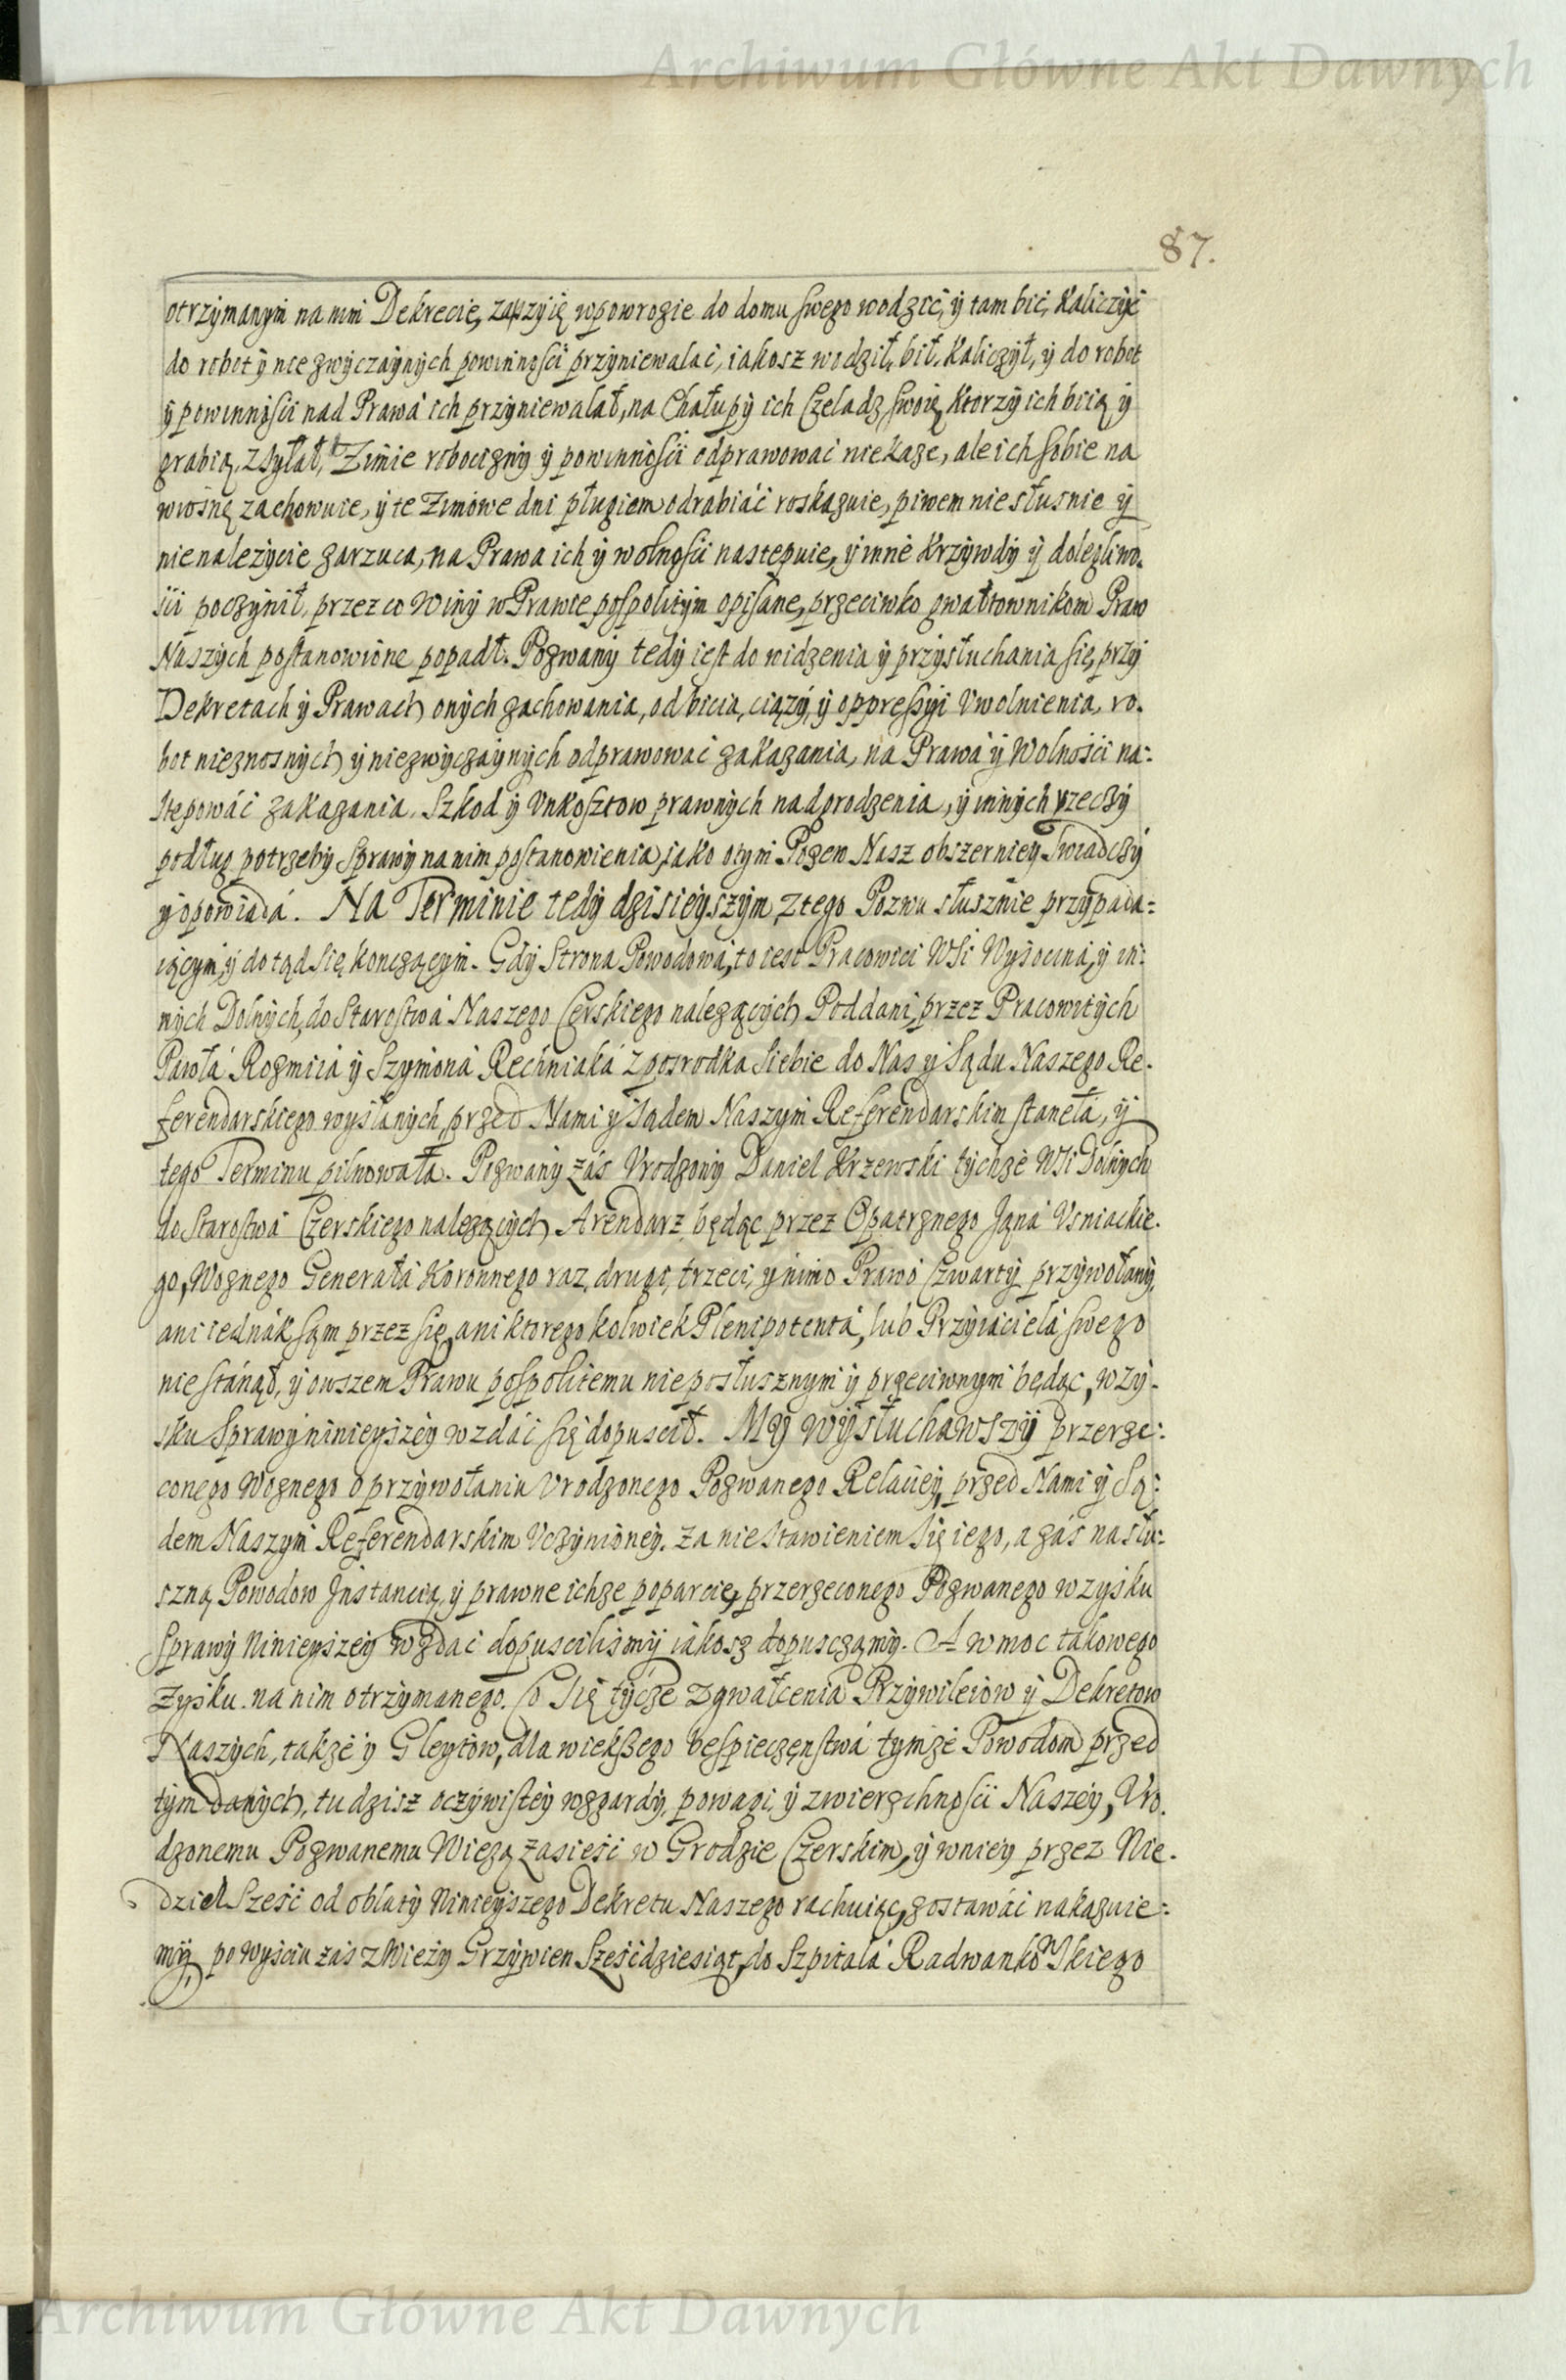 Archiwum Główne Akt Dawnych
87.
otrzymanym na nim Dekrecie, za szyię w powrozie do domu swego wodzić, y tam bić, kaliczyć
do robot y niezwyczaynych powinnosci przyniewalać, iakosz wodził, bił, kaliczył, y do robot
y powinnosci nad Prawa ich przyniewalał, na Chałupy ich Czeladz swoię, ktorzy ich biią y
grabią, zsyłał, Zimie robocizny y powinnosci odprawować niekaze, ale ich sobie na
wiosnę zachowuie, y te Zimowe dni pługiem odrabiáć roskazuie, piwem niesłusnie y
nienależycie zarzuca, na Prawa ich y wolnosci nastepuie, y inne Krzywdy y dolegliwo-
sci poczynił, przez co Winy w Prawie pospolitym opisane, przeciwko gwałtownikom Praw
Naszych postanowione popadł. Pozwany tedy iest do widzenia y przysłuchania się, przy
Dekretach y Prawach onych zachowania, od bicia, ciąży, y oppressyi Vwolnienia, ro-
bot nieznosnych y niezwyczaynych odprawować zakazania, na Prawa y Wolności na:
stepowáć zakazania. Szkod y Vnkosztow prawnych nadgrodzenia, y innych rzeczy
podług potrzeby Sprawy na nim postanowienia, iako o tym Pozew Nasz obszerniey Swiadczy
y opowiáda. Na Terminie tedy dzisieyszym, z tego Pozwu słusznie przypada=
iącym, y do tąd się konczącym. Gdy Strona Powodowa, to iest Pracowici Wsi Wysocina, y in:
nych Dolnych, do Starostwá Naszego Czerskiego nalezących Poddani, przez Pracowitych
Pawła Rogmiia y Szymona Rechniaká z posrodka siebie do Nas y Sądu Naszego Re-
ferendarskiego wysłanych, przed Nami y Sądem Naszym Referendarskim staneła, y
tego Terminu pilnowała. Pozwany záś Vrodzony Daniel Krzewski tychże Wsi Dolnych
do Starostwá Czerskiego nalezących Arendarz, będąc przez Opatrznego Jąná Vsniackie-
go, Woznego Generałá Koronnego raz, drugi, trzeci, y nimo Prawo Czwarty przywołany,
ani iednák sąm przez się, ani ktorego kolwiek Plenipotentá, lub Przyiacielá swego
nie stánął, y owszem Prawu pospolitemu nieposłusznym y przeciwnym będąc, w zy-
sku Sprawy ninieyszey wzdáć się dopuscił. My wysłuchawszy przerze:
conego Woznego o przywołaniu Vrodzonego Pozwanego Relaciey, przed Nami y Są:
dem Naszym Referendarskim Vczynioney. za niestawieniem się iego, a záś na słu:
szną Powodow Jnstancią, y prawne ichze poparcie, przerzeconego Pozwanego w zysku
Sprawy Ninieyszey wzdać dopuscilismy iakosz dopuszczamy. A w moc takowego
zysku na nim otrzymanego. Co się tycze zgwałcenia Przywileiow y Dekretow
Naszych, także y Gleytow, dla wiekszego bespieczęnstwá tymże Powodom przed
tym danych, tudzisz oczywistey wzgardy, powagi, y zwierzchnosci Naszey, Vro-
dzonemu Pozwanemu Wiezą zasieść w Grodzie Czerskim, y w niey przez Nie-
dziel Sześć od oblaty Ninieyszego Dekretu Naszego rachuiąc, zostawáć nakazuie:
my, po wyściu zaś z Wieży Grzywien Sześćdziesiąt, do Szpitala Radwankowskiego
Archiwum Główne Akt Dawnych